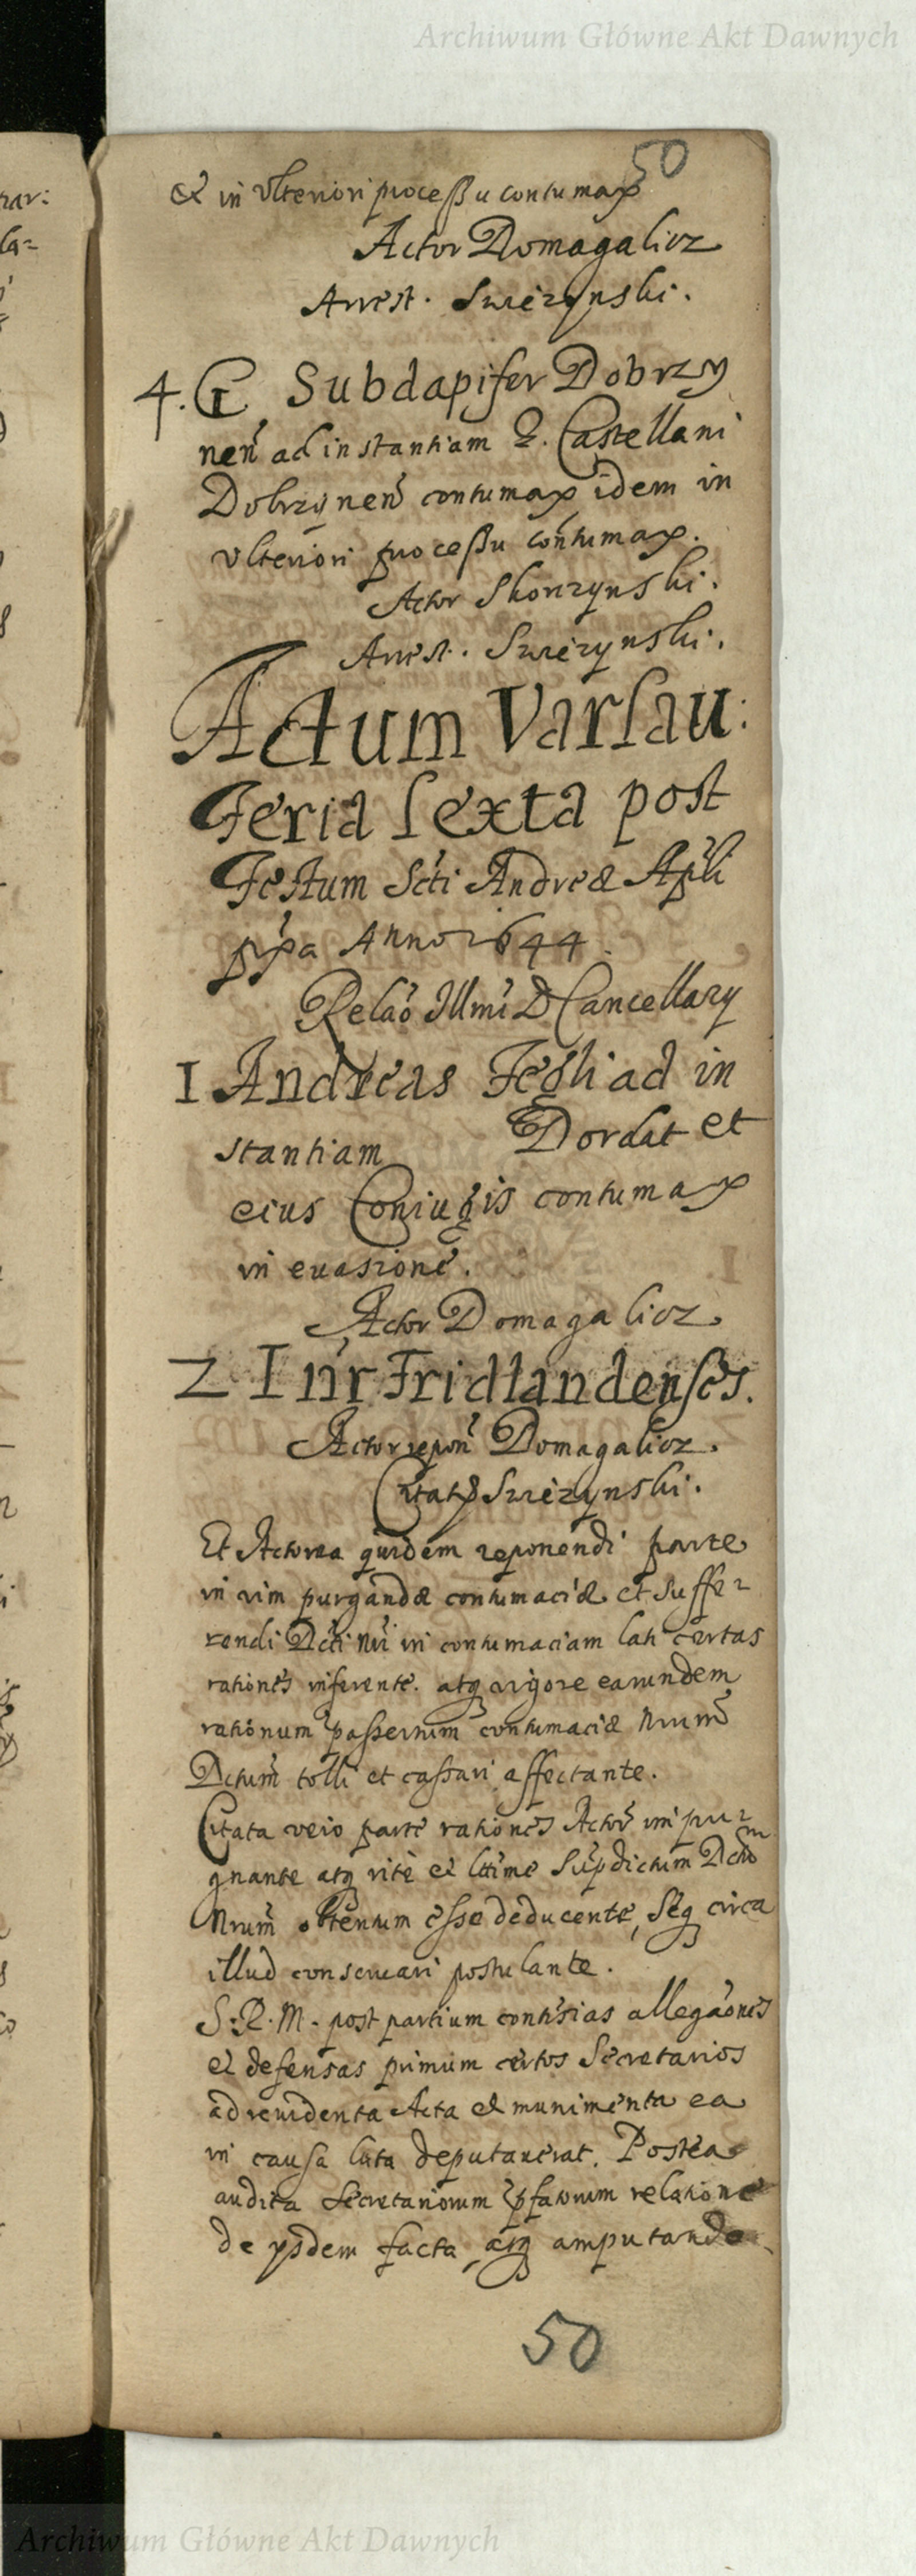 Archiwum Główne Akt Dawnych
50
& in Ulteriori processu contumax
Actor Domagalicz
Arrest. Swiezynski.
4. G Subdapifer Dobrzy
neñ ad instantiam G. Castellani
Dobrzyneñ contumax idem in
Ulteriori processu contumax.
Actor Skorzynski.
Arrest. Swiezynski.
Actum Varsau:
Feria Sexta post
Festum Scti Andreæ Apli
pxa Anno 1644.
Relaõ Illmi D Cancellary
1 Andreas Fegli ad in
stantiam Dordat et
eius Coniugis contumax
in euasione.
Actor Domagalicz.
2 Inr Fridlandenses.
Actor reponẽ Domagalicz.
Citatq Swiezynski.
Et Actorea quidem reponendi parte
in vim purgandæ contumaciæ et suffe-
rendi Dcti nri in contumaciam lati certas
rationes inferente. atq vigore earundem
rationum passerium contumaciæ Nrum
Dctum tolli et cassari affectante.
Citata vero parte rationes Actor impu-
gnante atq rite et lttime Supdictum Dctum
Nrum obtentum esse deducente, Seq circa
illud conseruari postulante.
S. R. M. post partium contrsias allegaones
et defensas primum certos Secretarios
ad reuidenta Acta et munimenta ea
in causa lata deputauerat. Postea
audita Secretariorum pfatorum relatione
de ysdem facta, atq amputando
50
Archiwum Główne Akt Dawnych